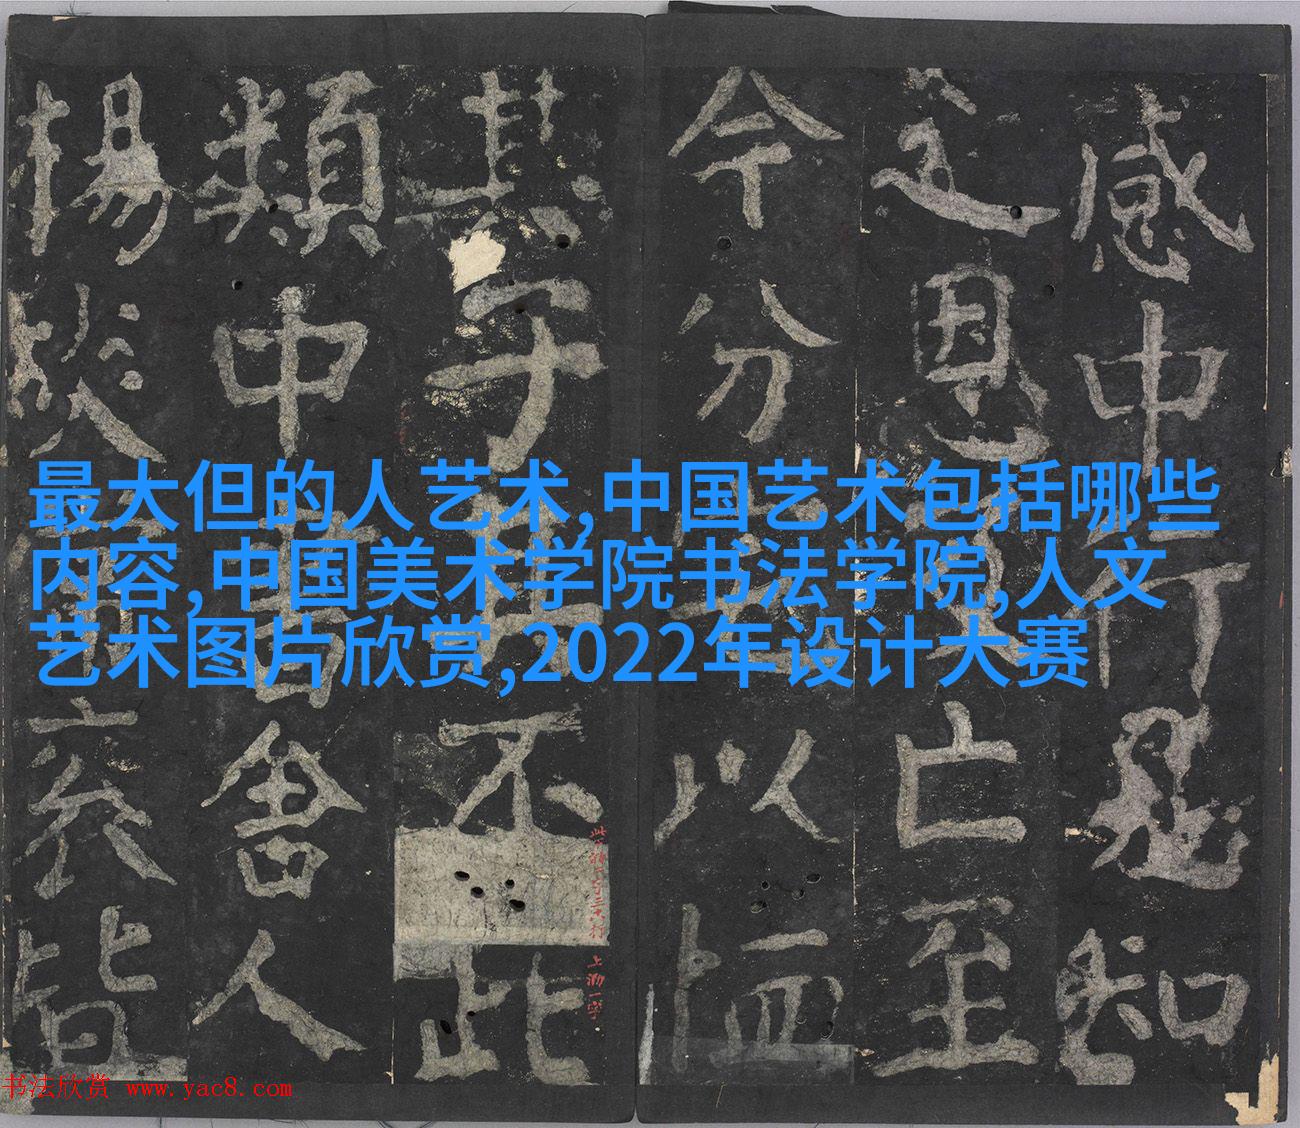 感中行知
恩亡至
今分以恤
其子不此
類中書舍人
楊炎皆
最大但的人艺术,中国艺术包括哪些
内容,中国美术学院书法学院,人文
艺术图片欣赏,2022年设计大赛
书法欣赏 www.yac8.com